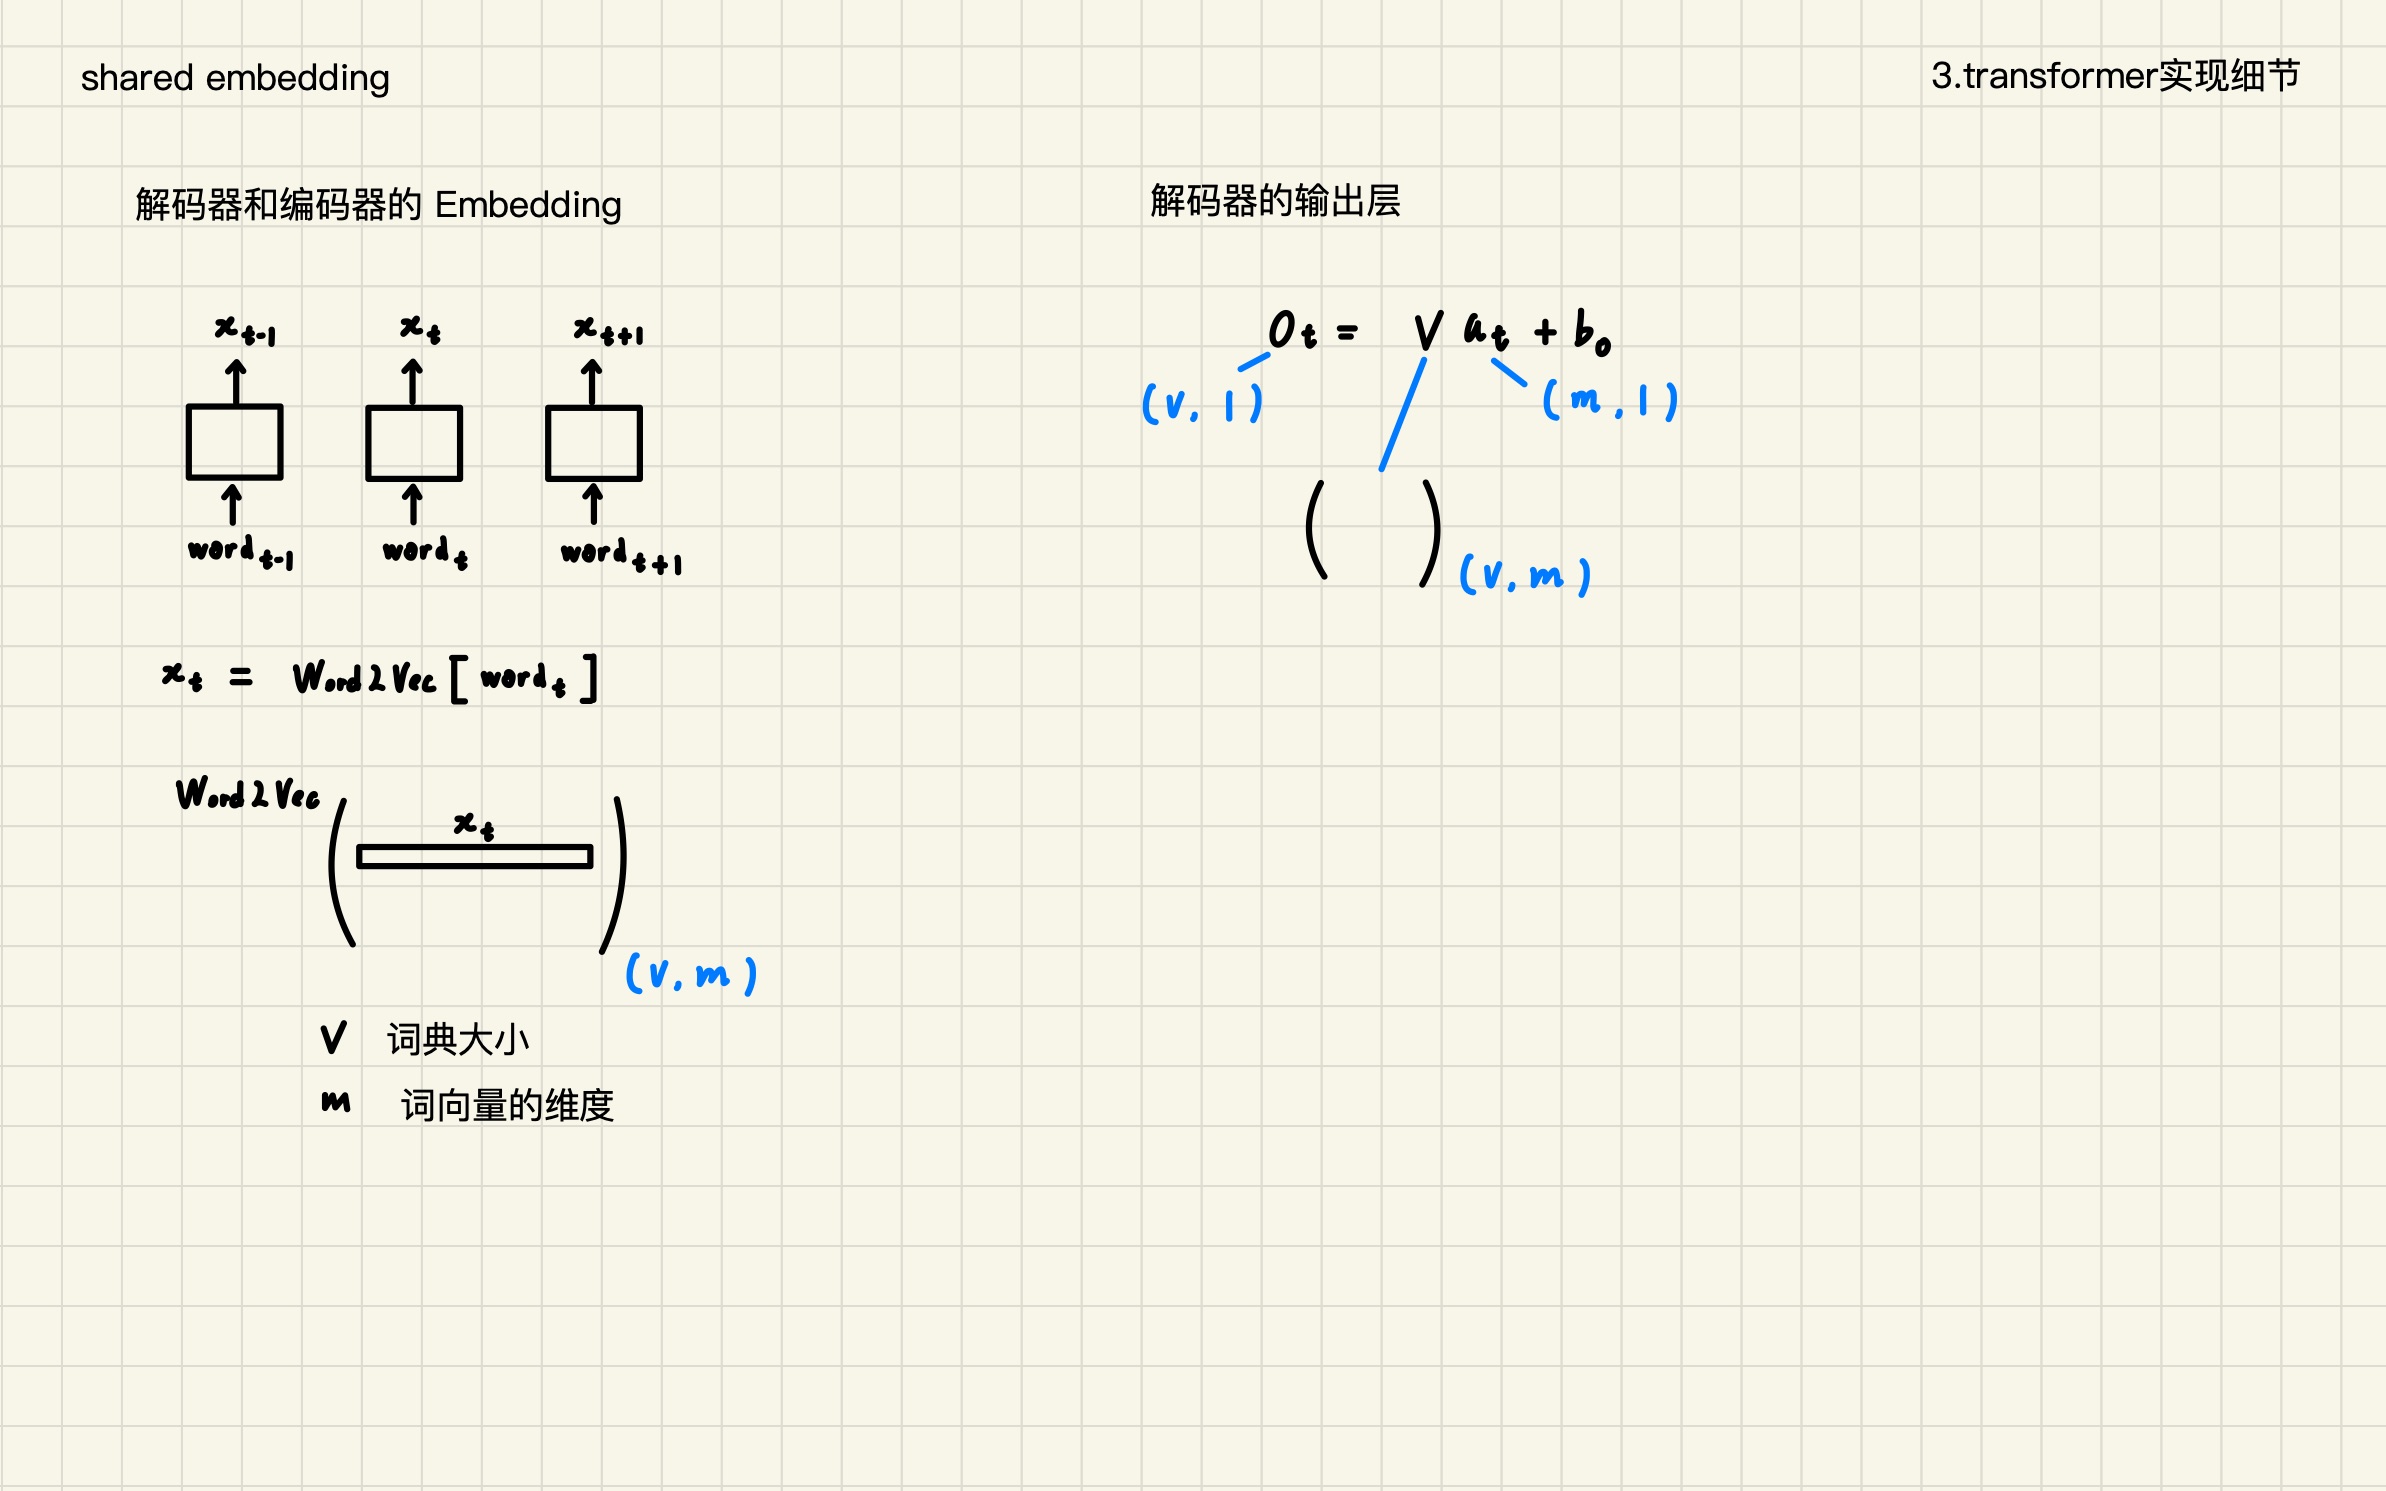 shared embedding
3.transformer实现细节
解码器和编码器的 Embedding
x_{t-1} x_t x_{t+1}
word_{t-1} word_t word_{t+1}
x_t = Word2Vec [ word_t ]
Word2Vec
x_t
(V, m)
V 词典大小
m 词向量的维度
解码器的输出层
O_t = V a_t + b_o
(V, 1)
(m, 1)
(V, m)